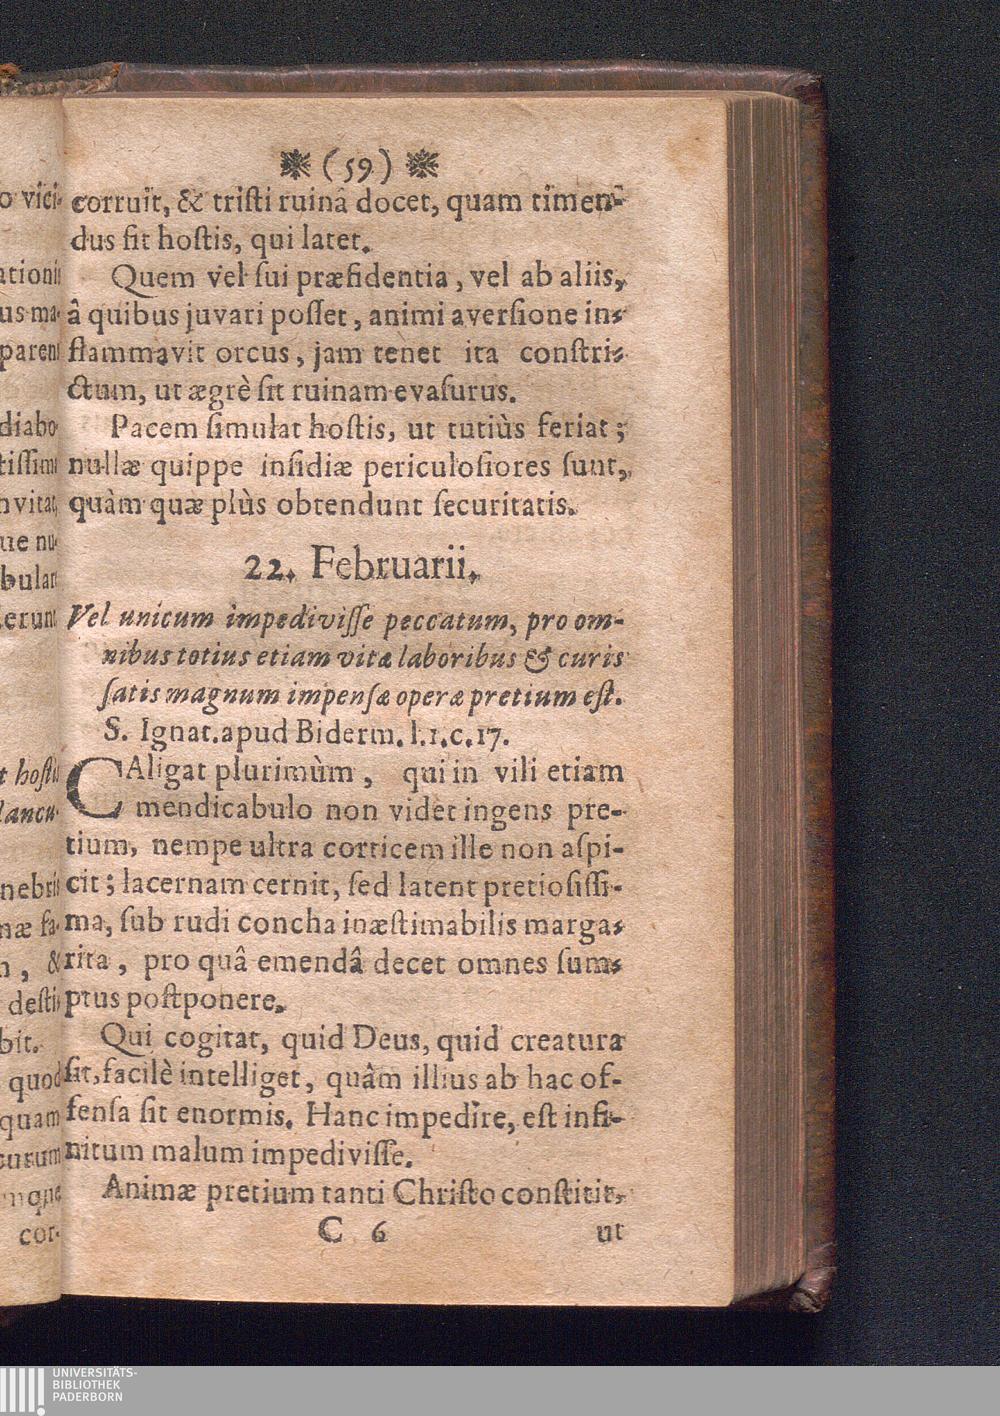 ❋ (59) ❋
corruit, & tristi ruinâ docet, quam timen-
dus sit hostis, qui latet.
Quem vel sui præfidentia, vel ab aliis,
â quibus juvari posset, animi aversione in-
flammavit orcus, jam tenet ita constri-
ctum, ut ægrè sit ruinam evasurus.
Pacem simulat hostis, ut tutiùs feriat;
nullæ quippe insidiæ periculosiores sunt,
quàm quæ plùs obtendunt securitatis.
22. Februarii.
Vel unicum impedivisse peccatum, pro om-
nibus totius etiam vitæ laboribus & curis
satis magnum impensæ operæ pretium est.
S. Ignat. apud Biderm. l.1.c.17.
CAligat plurimùm, qui in vili etiam
mendicabulo non videt ingens pre-
tium, nempe ultra corticem ille non aspi-
cit; lacernam cernit, sed latent pretiosissi-
ma, sub rudi concha inæstimabilis marga-
rita, pro quâ emendâ decet omnes sum-
ptus postponere.
Qui cogitat, quid Deus, quid creatura
sit, facilè intelliget, quâm illius ab hac of-
fensa sit enormis. Hanc impedire, est infi-
nitum malum impedivisse.
Animæ pretium tanti Christo constitit,
C 6 ut
UNIVERSITÄTS-
BIBLIOTHEK
PADERBORN